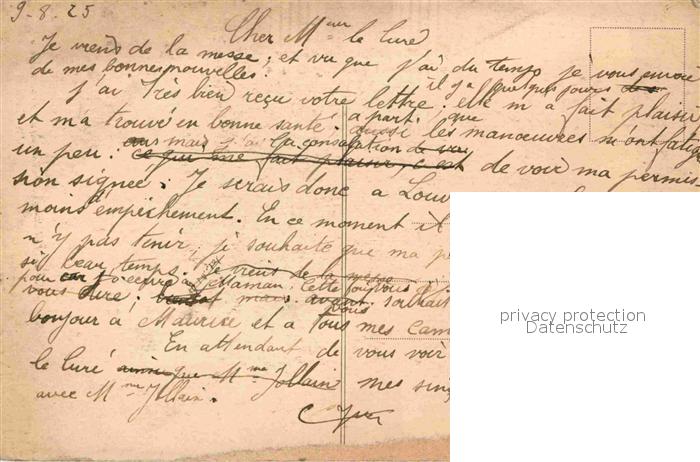 9-8.25
Cher Mr le Curé
Je viens de la messe; et vu que j'ai du temps je vous envoie
de mes bonnes nouvelles.
J'ai très bien reçu votre lettre il y a quelques jours elle m'a fait plaisir
et m'a trouvé en bonne santé à part que les manœuvres m'ont fatigué
un peu. mais j'ai la consolation de voir ma permis
sion signée: Je serais donc a Louv
moins d'empêchement. En ce moment il
n'y pas tenir, je souhaite que ma p
si beau temps. Je viens de la messe
pour Maman. Cette fois vous
vous dire; mais avant souhait
bonjour à Maurice et a tous mes cam
En attendant de vous voir
le Curé ainsi que Mme Jollain mes sin
avec Mme Jollain.
privacy protection
Datenschutz